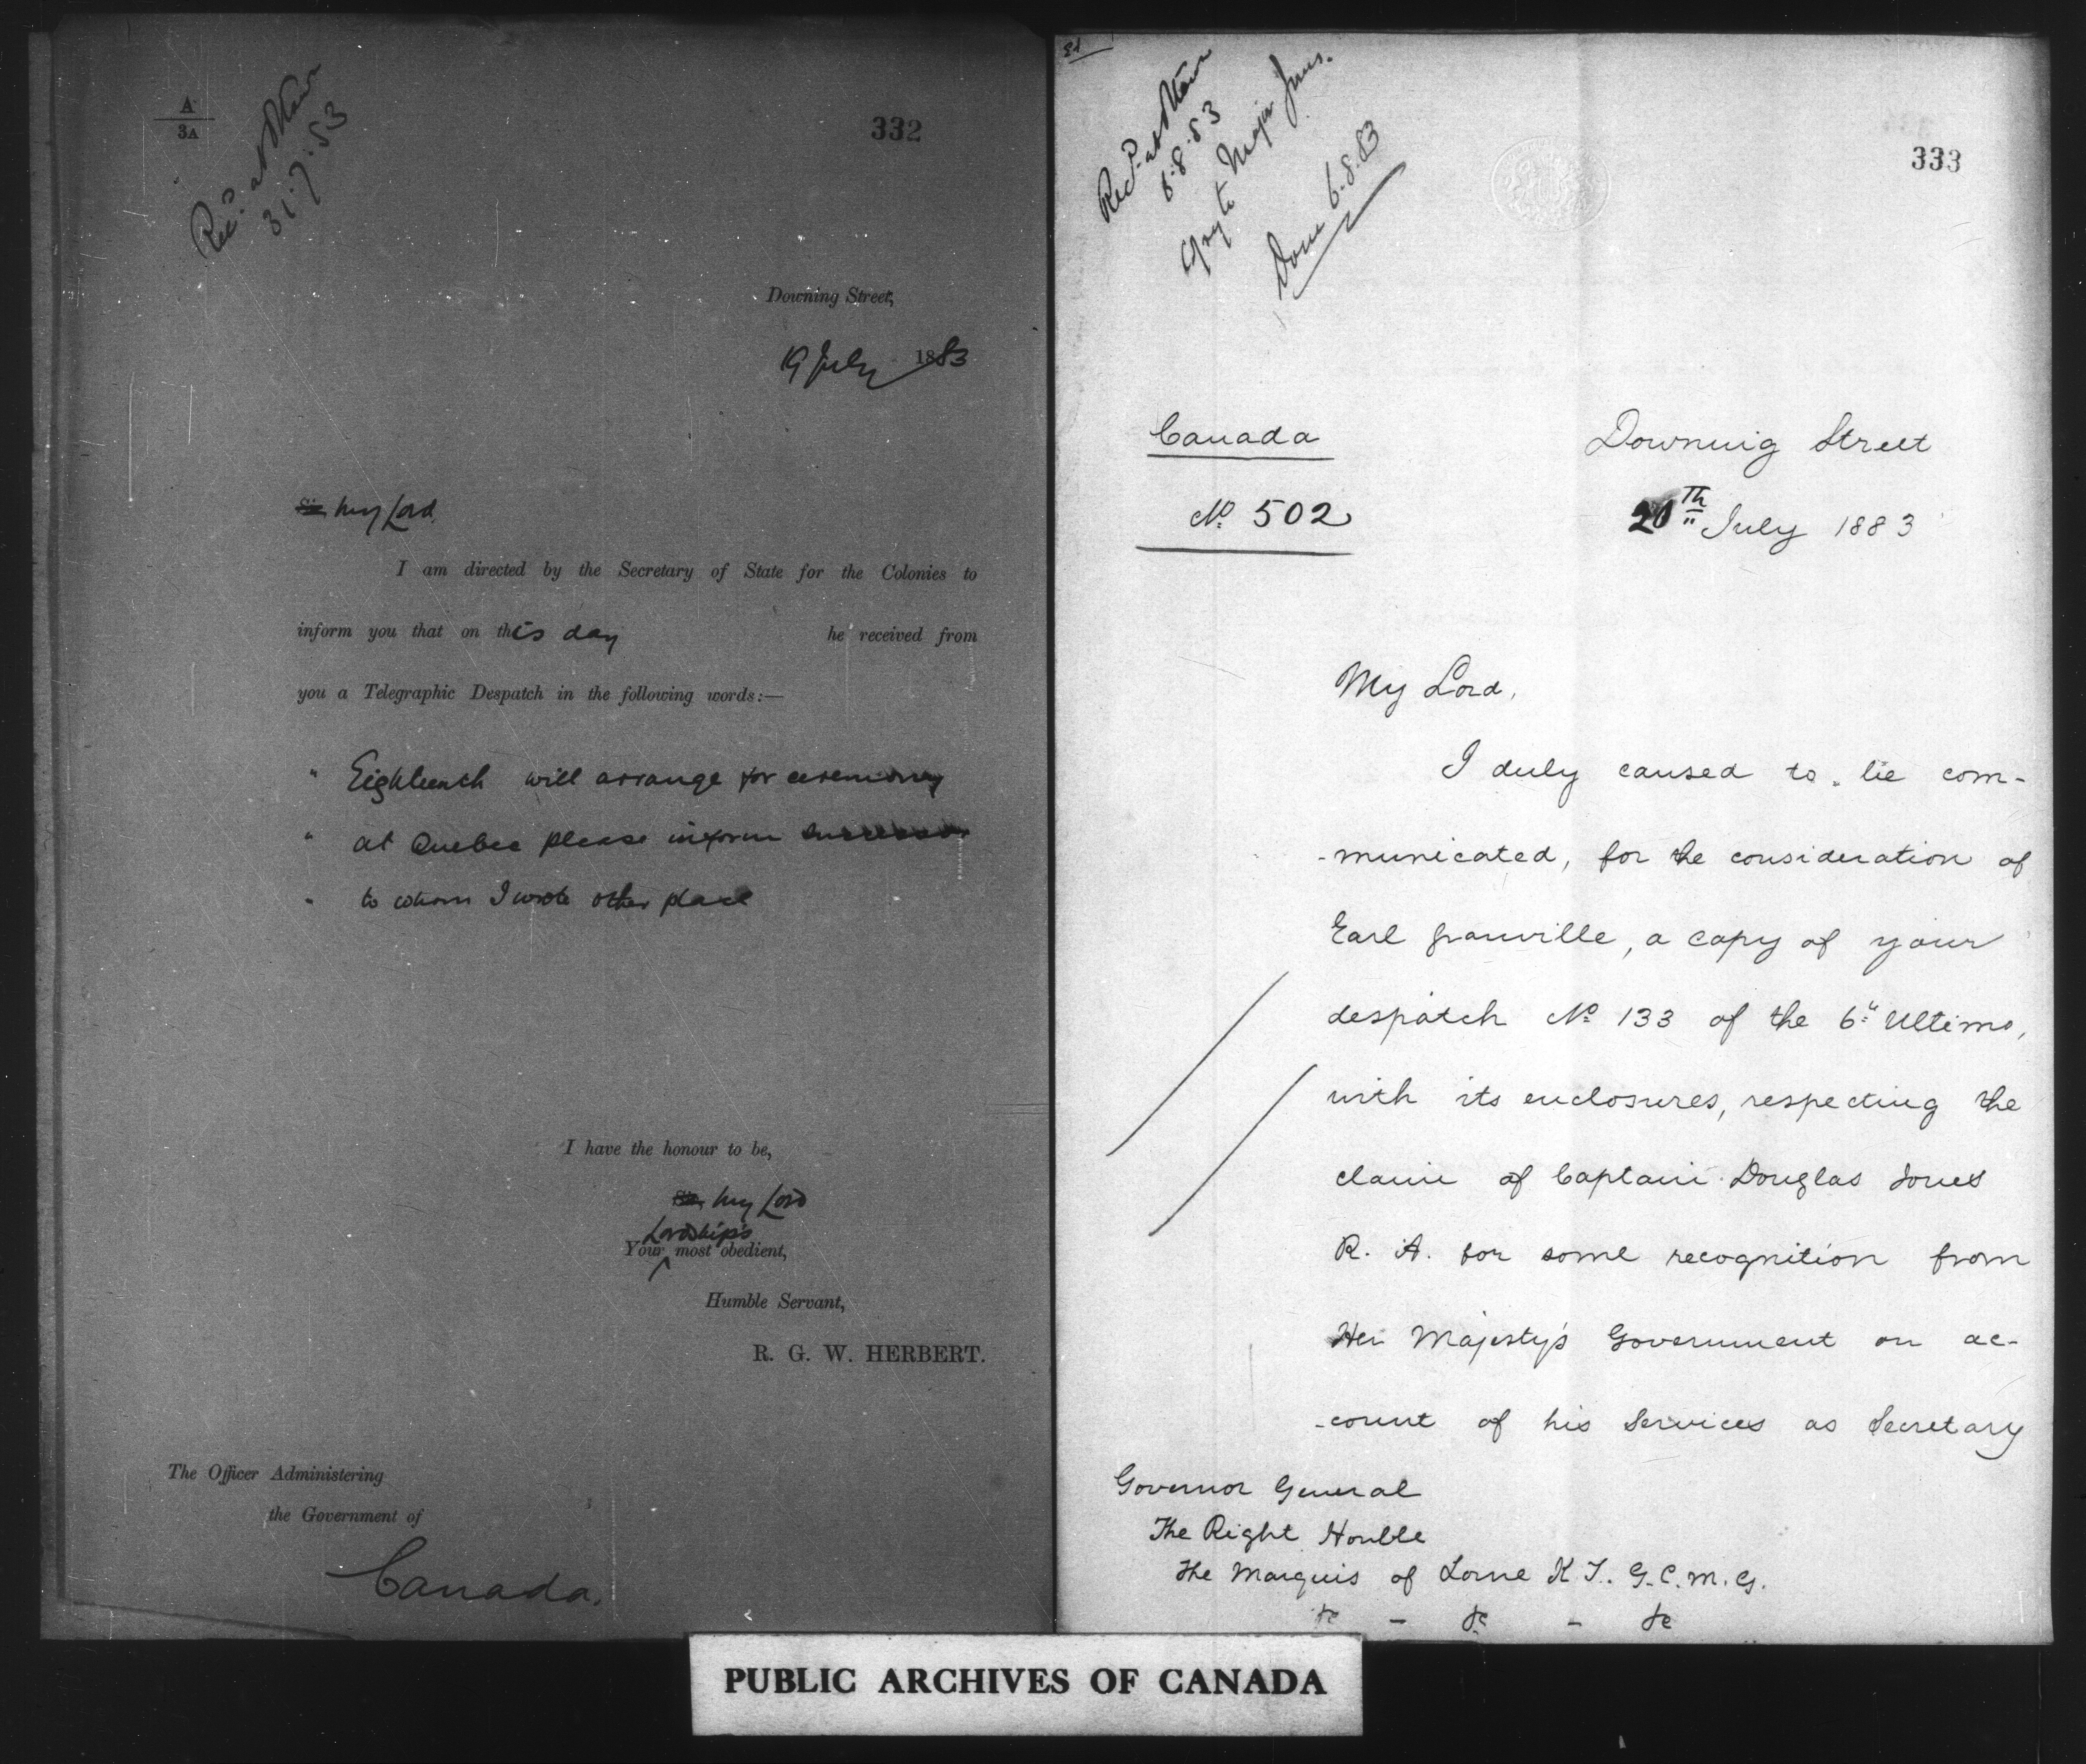 A
3A
Recd. at Ottawa
31.7.83
332
Downing Street,
19 July 1883
Sir My Lord,
I am directed by the Secretary of State for the Colonies to
inform you that on this day he received from
you a Telegraphic Despatch in the following words:—
" Eighteenth will arrange for ceremony
" at Quebec please inform successor
" to whom I wrote other place
I have the honour to be,
Sir, My Lord
Lordship's
Your most obedient,
Humble Servant,
R. G. W. HERBERT.
The Officer Administering
the Government of
Canada.
Recd. at Ottawa
6.8.83
Copy to Major Jones.
Done 6.8.83
333
Canada
No. 502
Downing Street
20th July 1883
My Lord,
I duly caused to be com-
-municated, for the consideration of
Earl Granville, a copy of your
despatch No. 133 of the 6th Ultimo,
with its enclosures, respecting the
claim of Captain Douglas Jones
R. A. for some recognition from
Her Majesty's Government on ac-
-count of his Services as Secretary
Governor General
The Right Honble
The Marquis of Lorne K T. G.C.M.G.
&c - &c - &c
PUBLIC ARCHIVES OF CANADA